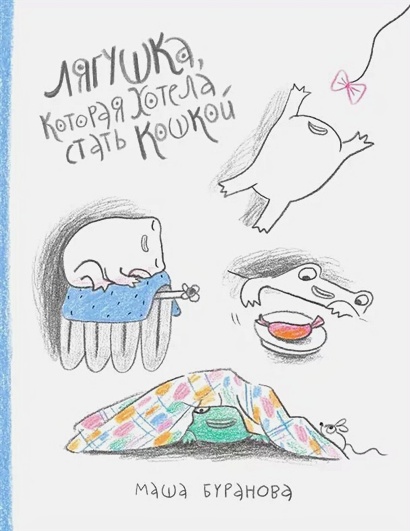 Лягушка,
которая хотела
стать кошкой
Маша Буранова